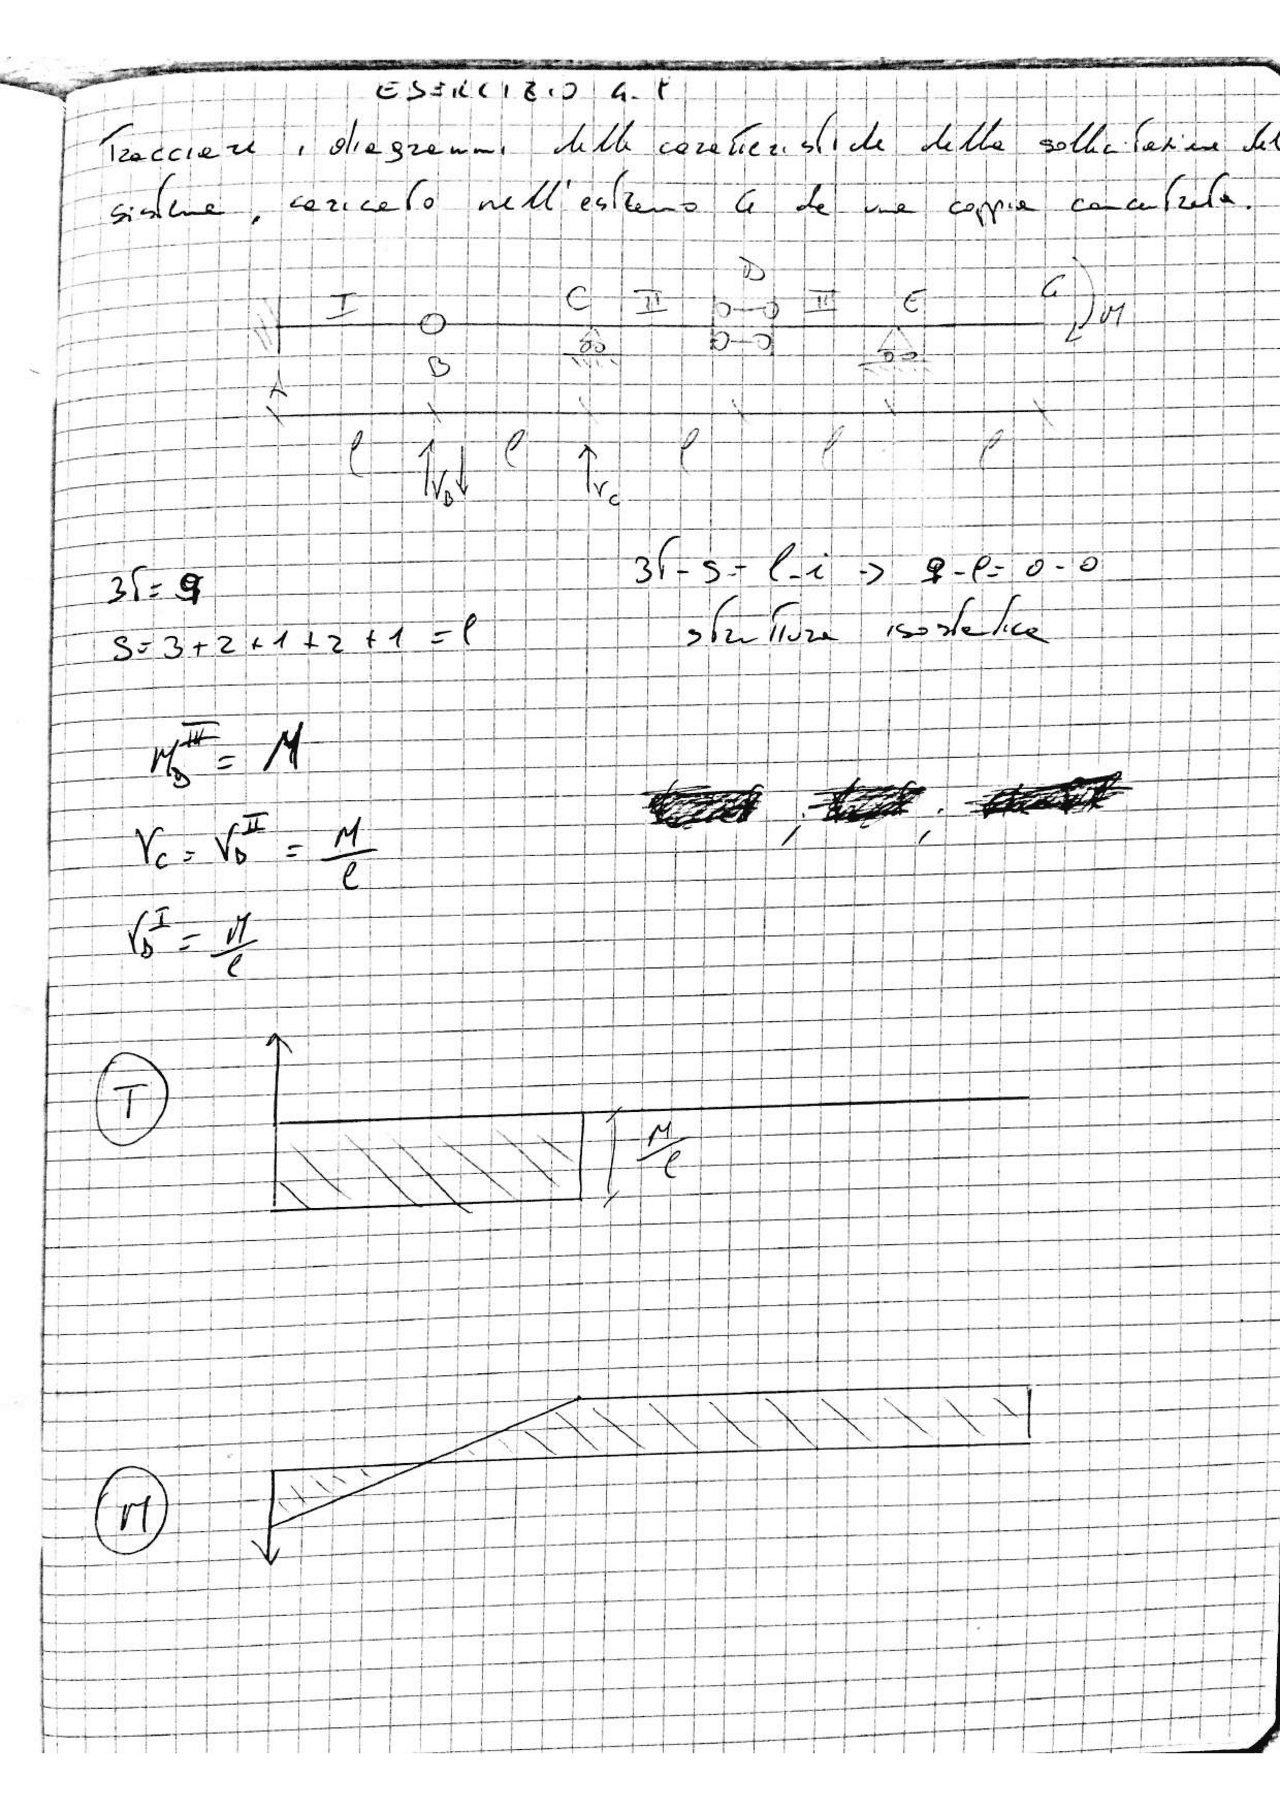 ESERCIZIO 4.8
Tracciare i diagrammi delle caratteristiche della sollecitazione del
sistema, caricato nell'estremo G da una coppia concentrata.
I C II D III E G M
B
A
l l l l l
V_B V_C
3t = 9
3t - s = l - i → 9 - 9 = 0 - 0
s = 3 + 2 + 1 + 2 + 1 = 9
struttura isostatica
M_D^III = M
V_C = V_B^II = M/l
V_B^I = M/l
T
M/l
M